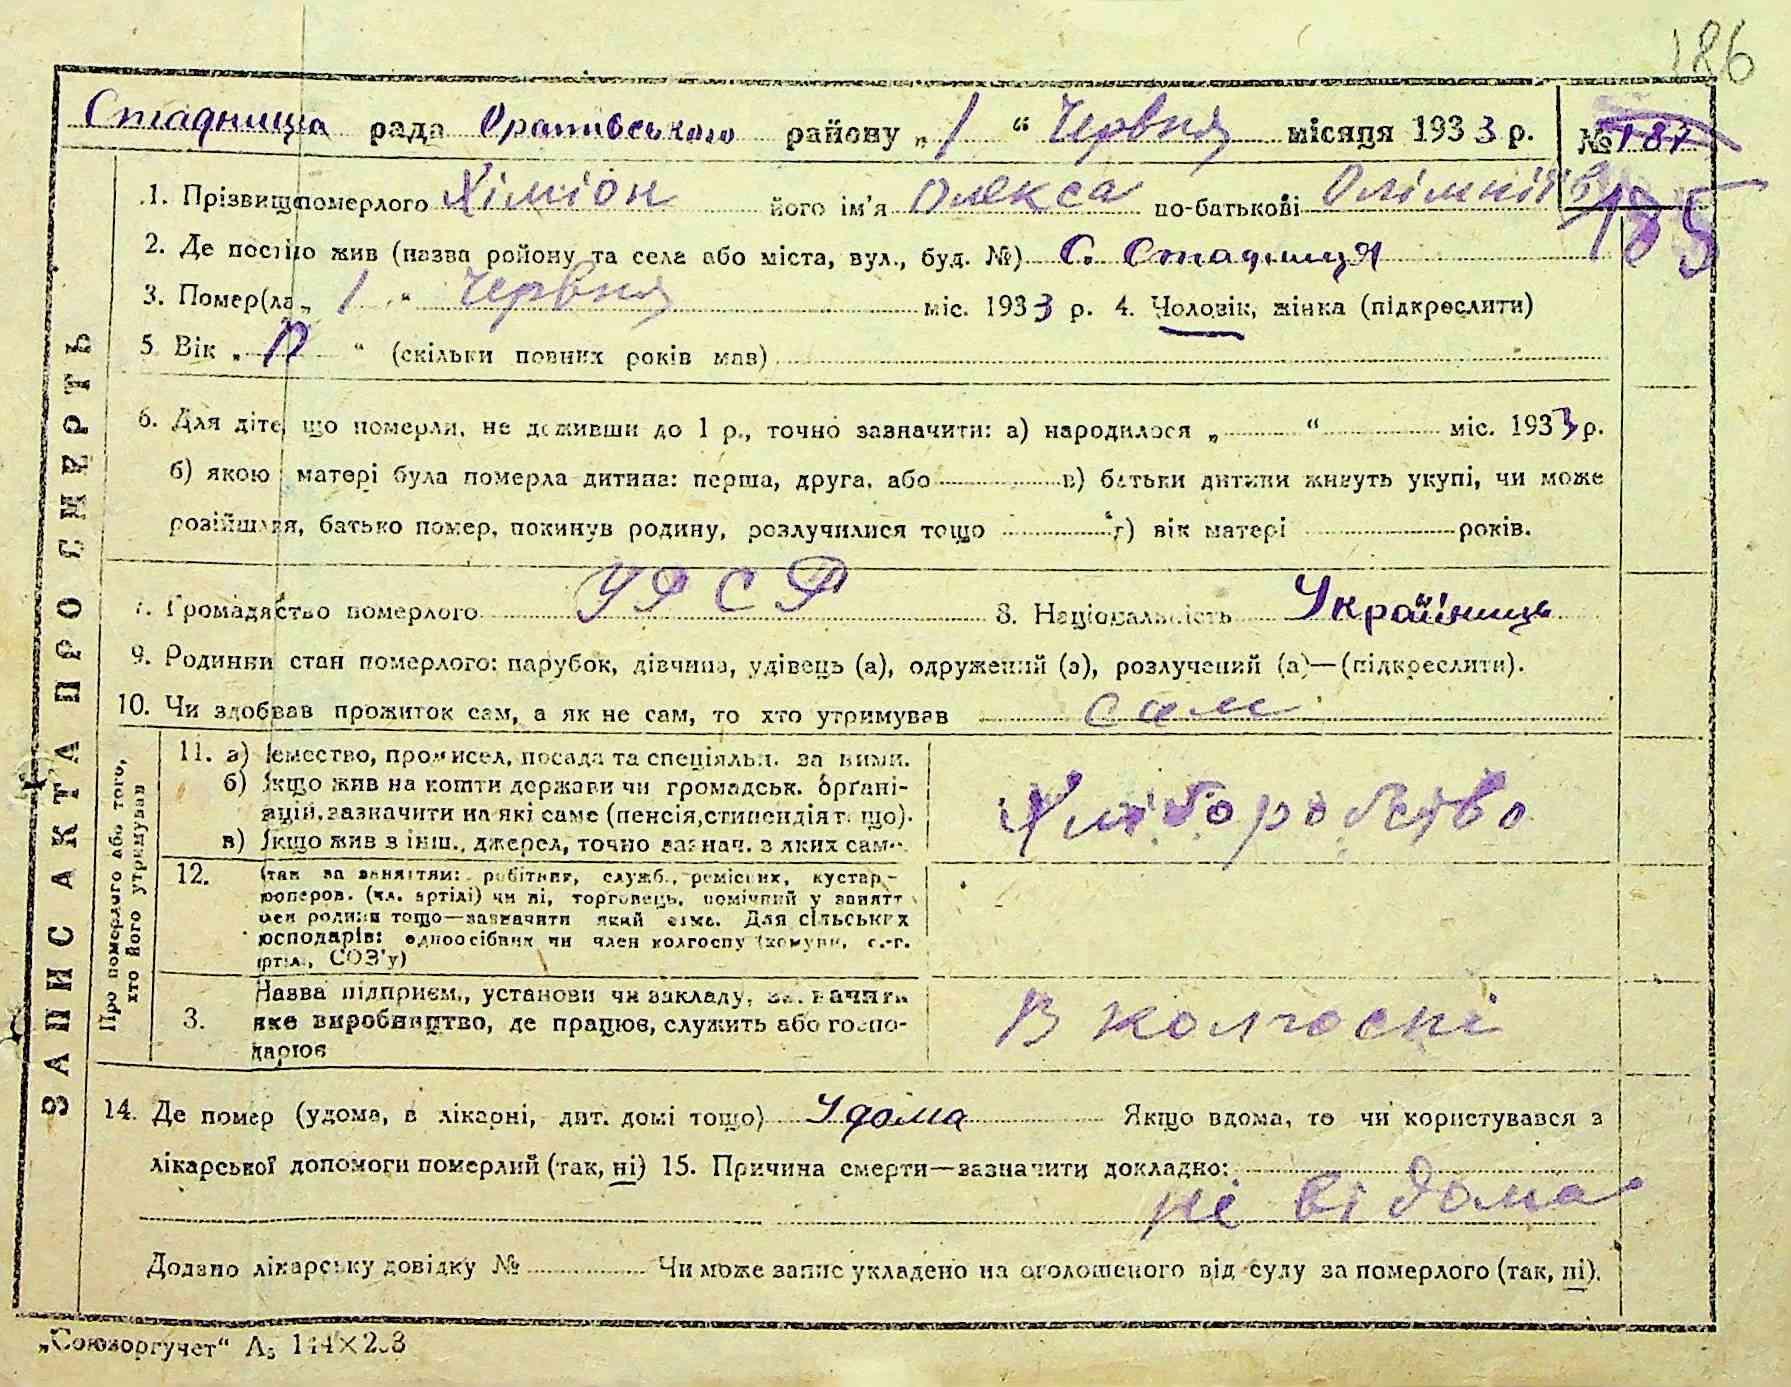 186
Стадниця рада Оратівського району „1“ Червня місяця 1933 р. № 187
185
1. Прізвище померлого Хіміон його ім'я Олекса по-батькові
2. Де постійно жив (назва району та села або міста, вул., буд. №) С. Стадниця
3. Помер(ла „1“ Червня міс. 1933 р. 4. Чоловік, жінка (підкреслити)
5 Вік „ “ (скільки повних років мав)
6. Для діте що померли, не доживши до 1 р., точно зазначити: а) народилося „ “ міс. 1933 р.
б) якою матері була померла дитина: перша, друга, або в) батьки дитини живуть укупі, чи може
розійшлися, батько помер, покинув родину, розлучилися тощо г) вік матері років.
7. Громадяство померлого УРСР 8. Національність Українець
9. Родинни стан померлого: парубок, дівчина, удівець (а), одружений (а), розлучений (а)—(підкреслити).
10. Чи здобував прожиток сам, а як не сам, то хто утримував сам
ЗАПИС АКТА ПРО СМЕРТЬ
Про померлого або того,
хто його утримував
11. а) емество, промисел, посада та спеціяльн. за ними.
б) Якщо жив на кошти держави чи громадськ. органі-
зацій, зазначити на які саме (пенсія, стипендія т. що).
в) Якщо жив з інш., джерел, точно зазнач. з яких саме.
Хліборобство
12. Стан за заняттям: робітник, служб., ремісник, кустар-
кооперов. (чл. артілі) чи ні, торговець, помічний у занятт
член родини тощо—зазначити який саме. Для сільських
господарів: одноосібник чи член колгоспу (комуни, с.-г.
артіл., СОЗ'у)
3. Назва підприєм., установи чи закладу, зазначити
яке виробництво, де працює, служить або госпо-
дарює
В колгоспі
14. Де помер (удома, в лікарні, дит. домі тощо) Удома Якщо вдома, то чи користувався з
лікарської допомоги померлий (так, ні) 15. Причина смерти—зазначити докладно:
не відома
Додано лікарську довідку № Чи може запис укладено на оголошеного від суду за померлого (так, ні).
„Союзоргучет“ А5 144×203